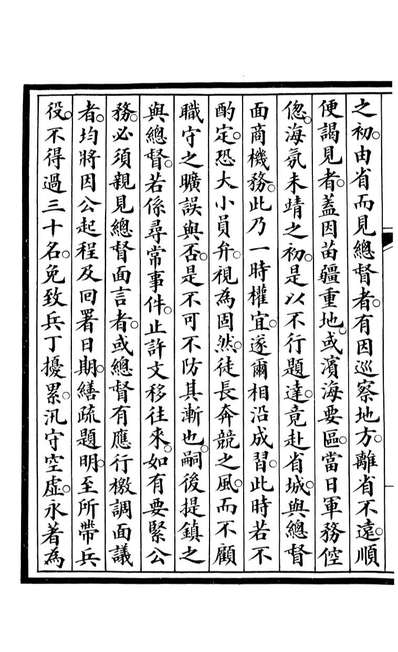 之初。由省而見總督者。有因巡察地方。離省不遠。順
便謁見者。蓋因苗疆重地。或濱海要區。當日軍務倥
偬。海氛未靖之初。是以不行題達。竟赴省城。與總督
面商機務。此乃一時權宜。遂爾相沿成習。此時若不
酌定。恐大小員弁。視為固然。徒長奔競之風。而不顧
職守之曠誤與否。是不可不防其漸也。嗣後提鎮之
與總督。若係尋常事件。止許文移往來。如有要緊公
務。必須親見總督面言者。或總督有應行檄調面議
者。均將因公起程及回署日期。繕疏題明。至所帶兵
役。不得過三十名。免致兵丁擾累。汛守空虛。永著為